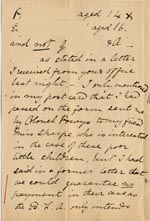 P aged 14 &
E aged 16.
and not & A
as stated in a letter
I received from your office
last night. I only mention
on my post card that I had
passed on the form sent me
by Colonel Powys to my friend
Miss Sharpe, who is interested
in the case of these poor
little children, but I had
said in a former letter that
we could guarantee no
payment in their case as
the B. L. A. only intend